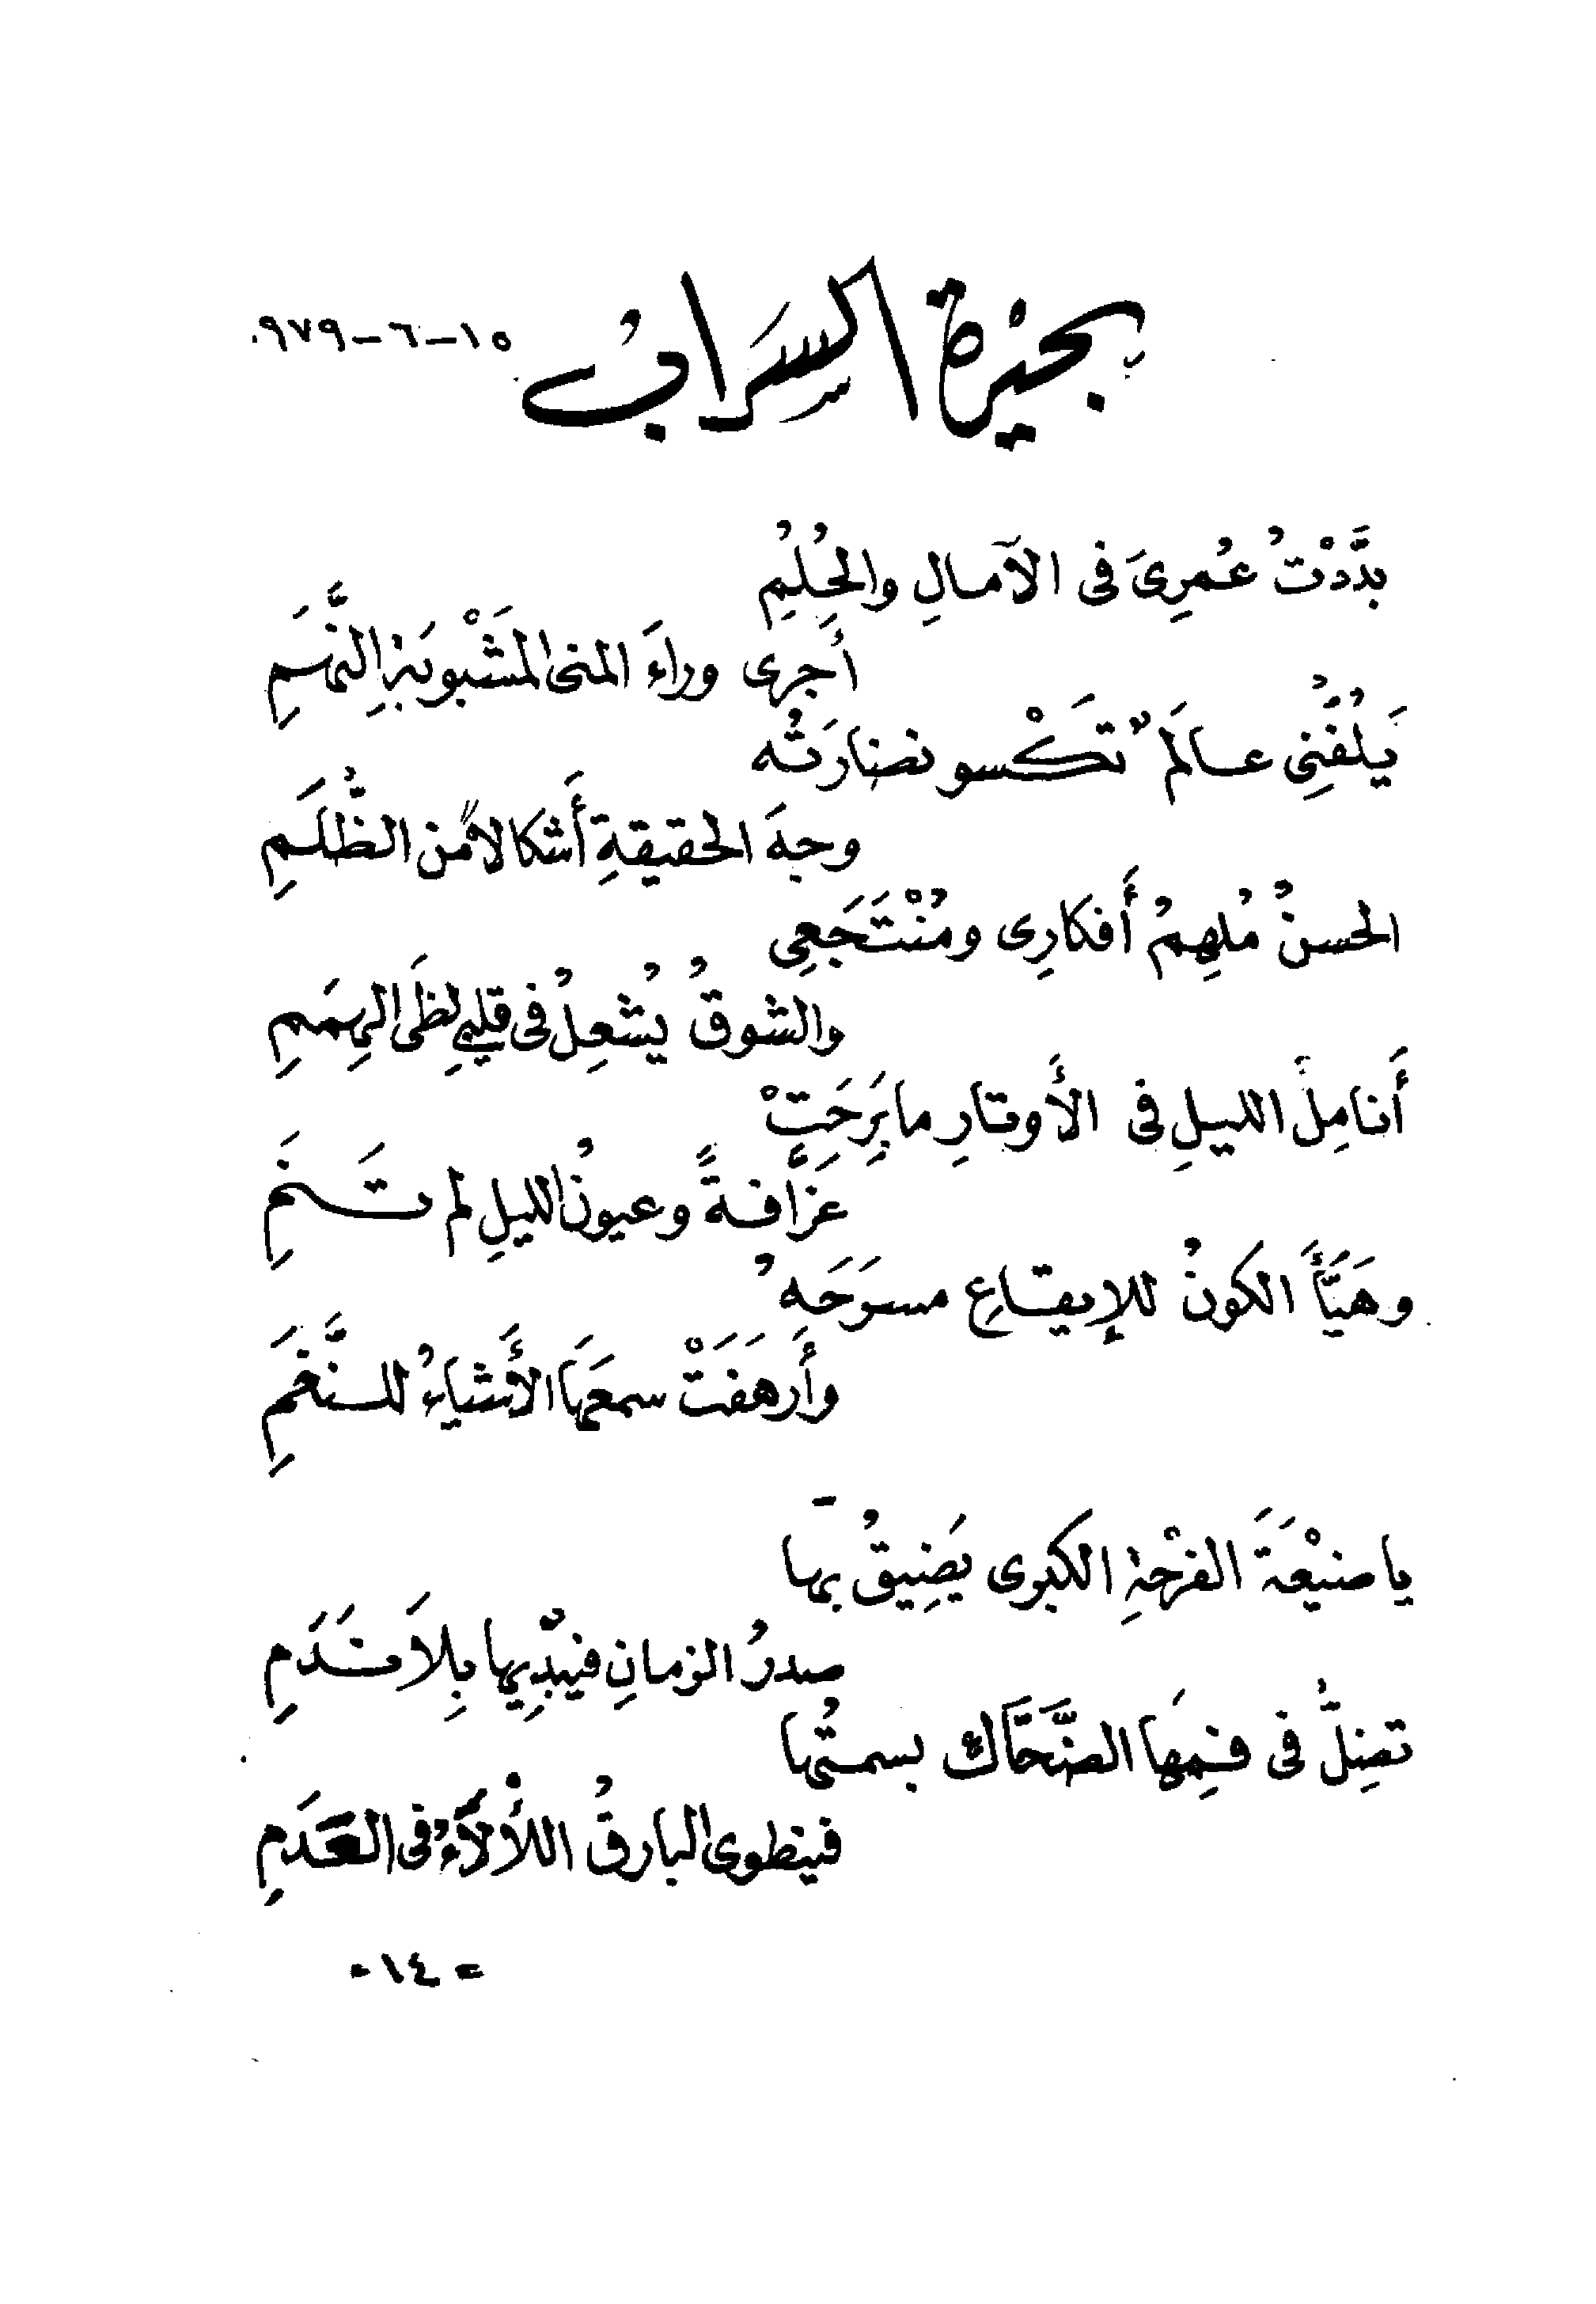 بحيْرة السَراب ١٥-٦-٩٧٩
بدَّدْتُ عُمرِىَ فى الآمالِ والحُلُمِ
أجرى وراءَ المنى المَشْبوبَةِ النَّهَمِ
يَلُفُّنِى عالَمٌ تَكْسو نضارَتُه
وجهَ الحقيقةِ أَشكالاً من الظُّلَمِ
الحسنُ مُلهِمُ أَفكارِى ومُنْتَجَعِى
والشوقُ يُشعِلُ فى قلبِى لظَى الهِمَمِ
أَنامِلُ الليلِ فى الأَوتارِ مابَرِحَتْ
عَزَّافةً وعيونُ الليلِ لم تَنَمِ
وهَيَّأَ الكونُ للإِيقاعِ مسرَحَهُ
وأَرهَفَتْ سمعَهَا الأَشياءُ للنَّغَمِ
ياضَيْعَةَ الفرْحةِ الكبرى يَضِيقُ بها
صدرُ الزمانِ فيبْدِيها بِلاَ نَدَمِ
تضِلُّ فى فمِهَا الضَّحَّاك بسمتُها
فينطوى البارقُ اللأْلآءُ فى العَدَمِ
- ١٤ -